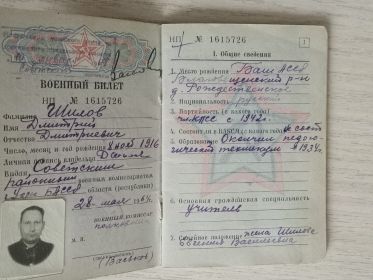 ВОЕННЫЙ БИЛЕТ
НП № 1615726
Фамилия Шилов
Имя Дмитрий
Отчество Дмитриевич
Число, месяц и год рождения 8 1916
Личная
Выдан Советским
районным военным комиссариатом
области (республики)
28 мая 1964
ВОЕННЫЙ КОМИССАР
М. П.
НП № 1615726
1
I. Общие сведения
1. Место рождения Баш АССР
р-н
д. Рождественское
2. Национальность русский
3. Партийность (с какого года)
член КПСС с 1942 г.
4. Состоит ли в ВЛКСМ (с какого года) не сост
5. Образование Окончил педаго-
гический техникум в 1934 г.
6. Основная гражданская специальность
учитель
7. Семейное положение жена Шилова
Евгения Васильевна